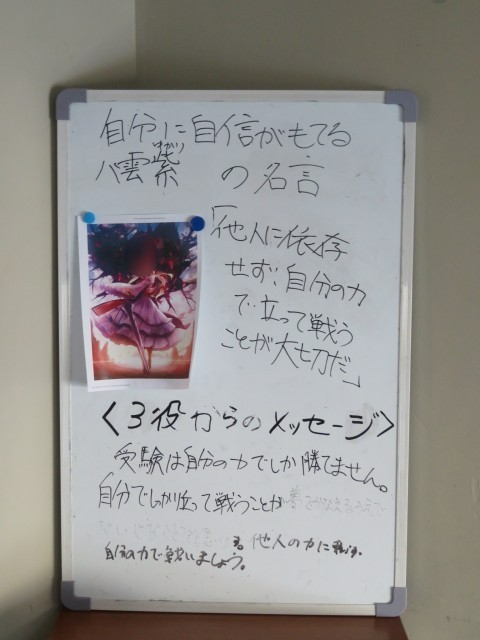 自分に自信がもてる
八雲紫 の名言
ゆかり
「他人に依存
せず、自分の力
で立って戦う
ことが大切だ」
<3役からのメッセージ>
受験は自分の力でしか勝てません。
自分でしっかり立って戦うことが
他人の力に
自分の力で戦いましょう。